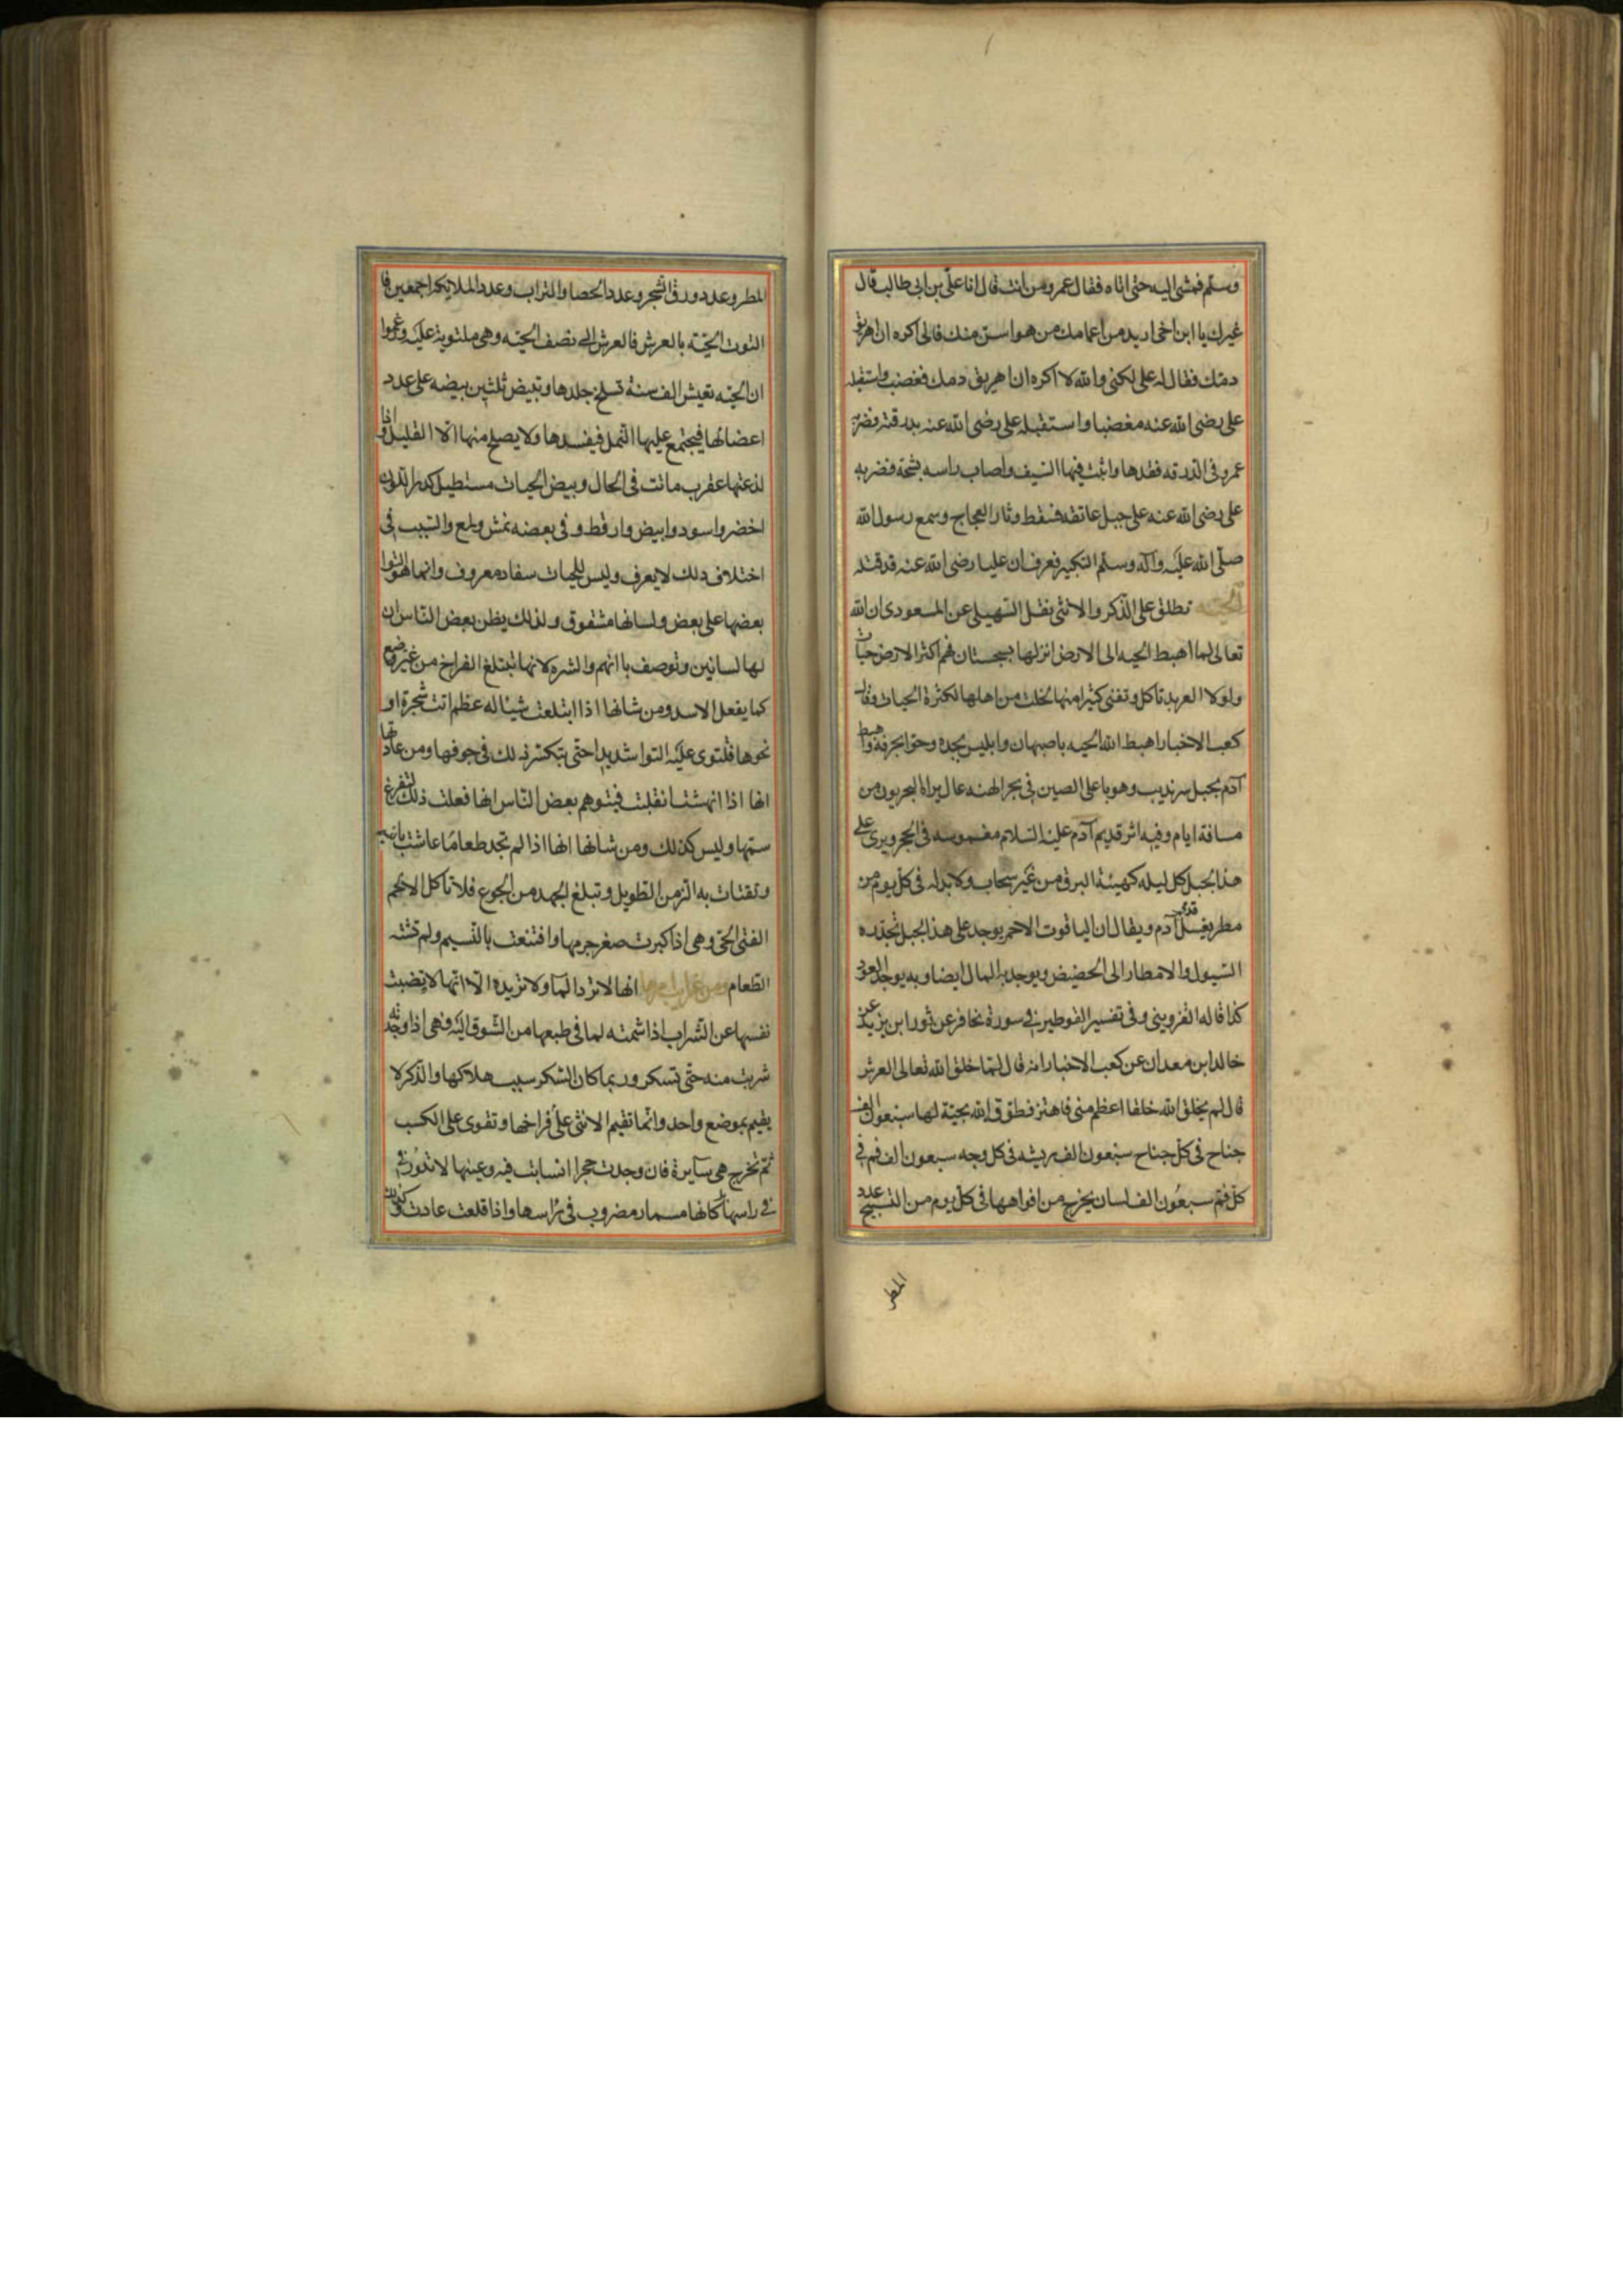 وسلم فمشى اليه حتى اتاه فقال عمرو من انت قال انا على بن ابى طالب قال
غيرك يا ابن اخى اريد من اعمامك من هو اسن منك فانى اكره ان اهريق
دمك فقال له على لكنى والله لا اكره ان اهريق دمك فغضب واستقبله
على رضى الله عنه مغضبا واستقبله على رضى الله عنه بدرقته فضربه
عمرو فى الدرقه فقدها واثبت فيها السيف واصاب راسه بشجة فضربه
على رضى الله عنه على حبل عاتقه فسقط وثار العجاج وسمع رسول الله
صلى الله عليه وآله وسلم التكبير فعرف ان عليا رضى الله عنه قد قتله
الحيته تطلق على الذكر والانثى نقل السهيلى عن المسعودى ان الله
تعالى لما اهبط الحيه الى الارض انزلها بسجستان فهم اكثر الارض حيات
ولولا العربد تاكل وتفنى كثيرا منها لخلت من اهلها لكثرة الحيات وقال
كعب الاخبار اهبط الله الحيه باصبهان وابليس بجده وحوا بعرفة واهبط
آدم بجبل سرنديب وهو باعلى الصين فى بحر الهند عال يراه البحريون من
مسافة ايام وفيه اثر قديم آدم عليه السلام مغموسه فى الحجر ويرى على
هذا الجبل كل ليله كهيئة البرق من غير سحاب ولا بد له فى كل يوم من
مطر يغسل قدمى آدم ويقال ان الياقوت الاحمر يوجد على هذا الجبل تحدره
السيول والامطار الى الحضيض ويوجد به الماس ايضا وبه يوجد العود
كذا قاله القزوينى وفى تفسير القرطبى فى سورة غافر عن ثور ابن يزيد عن
خالد ابن معدان عن كعب الاخبار انه قال لما خلق الله تعالى العرش
قال لم يخلق الله خلقا اعظم منى فاهتز فطوق الله بحيته لها سبعون الف
جناح فى كل جناح سبعون الف ريشه فى كل وجه سبعون الف فم فى
كل فم سبعون الف لسان يخرج من افواهها فى كل يوم من التسبيح عدد
المطر
المطر وعدد ورق الشجر وعدد الحصا والتراب وعدد الملايكه اجمعين فا
التوت الحيته بالعرش فالعرش الى نصف الحيته وهى ملتوية عليه وزعموا
ان الحيه تعيش الف سنة تسلخ جلدها وتبيض ثلثين بيضه على عدد
اعضالها فيجتمع عليها النمل فيفسدها ولا يصلح منها الا القليل واذا
لدغتها عقرب ماتت فى الحال وبيض الحيات مستطيل كدر اللون
اخضر واسود وابيض وارقط وفى بعضه نمش ولمع والسبب فى
اختلاف ذلك لا يعرف وليس للحيات سفاد معروف وانما هو التوا
بعضها على بعض ولسانها مشقوق ولذلك يظن بعض الناس ان
لها لسانين وتوصف بالنهم والشره لانها تبتلع الفراخ من غير مضغ
كما يفعل الاسد ومن شانها اذا ابتلعت شيئا له عظم اتت شجرة او
نحوها فتلتوى عليه التوا شديدا حتى يتكسر ذلك فى جوفها ومن عادتها
انها اذا نهشت انقلبت فيتوهم بعض الناس انها فعلت ذلك لتفرغ
سمها وليس كذلك ومن شانها انها اذا لم تجد طعاما عاشت بالنسيم
وتقتات به الزمن الطويل وتبلغ الجهد من الجوع فلا تاكل الا لحم
الفتى الحى وهى اذا كبرت صغر جرمها واقتنعت بالنسيم ولم تشته
الطعام ومن غرايب امرها انها لا ترد المآ ولا تريده الا انها لا تضبت
نفسها عن الشراب اذا شمته لما فى طبعها من الشوق اليه وهى اذا وجدته
شربت منه حتى تسكر وربما كان السكر سبب هلاكها والذكر لا
يقيم بموضع واحد وانما تقيم الانثى على فراخها وتقوى على الكسب
ثم تخرج هى سايرة فان وجدت حجرا انسابت فيه وعينها لا تدور فى
فى راسها كانها مسمار مضروب فى راسها واذا قلعت عادت وكذلك